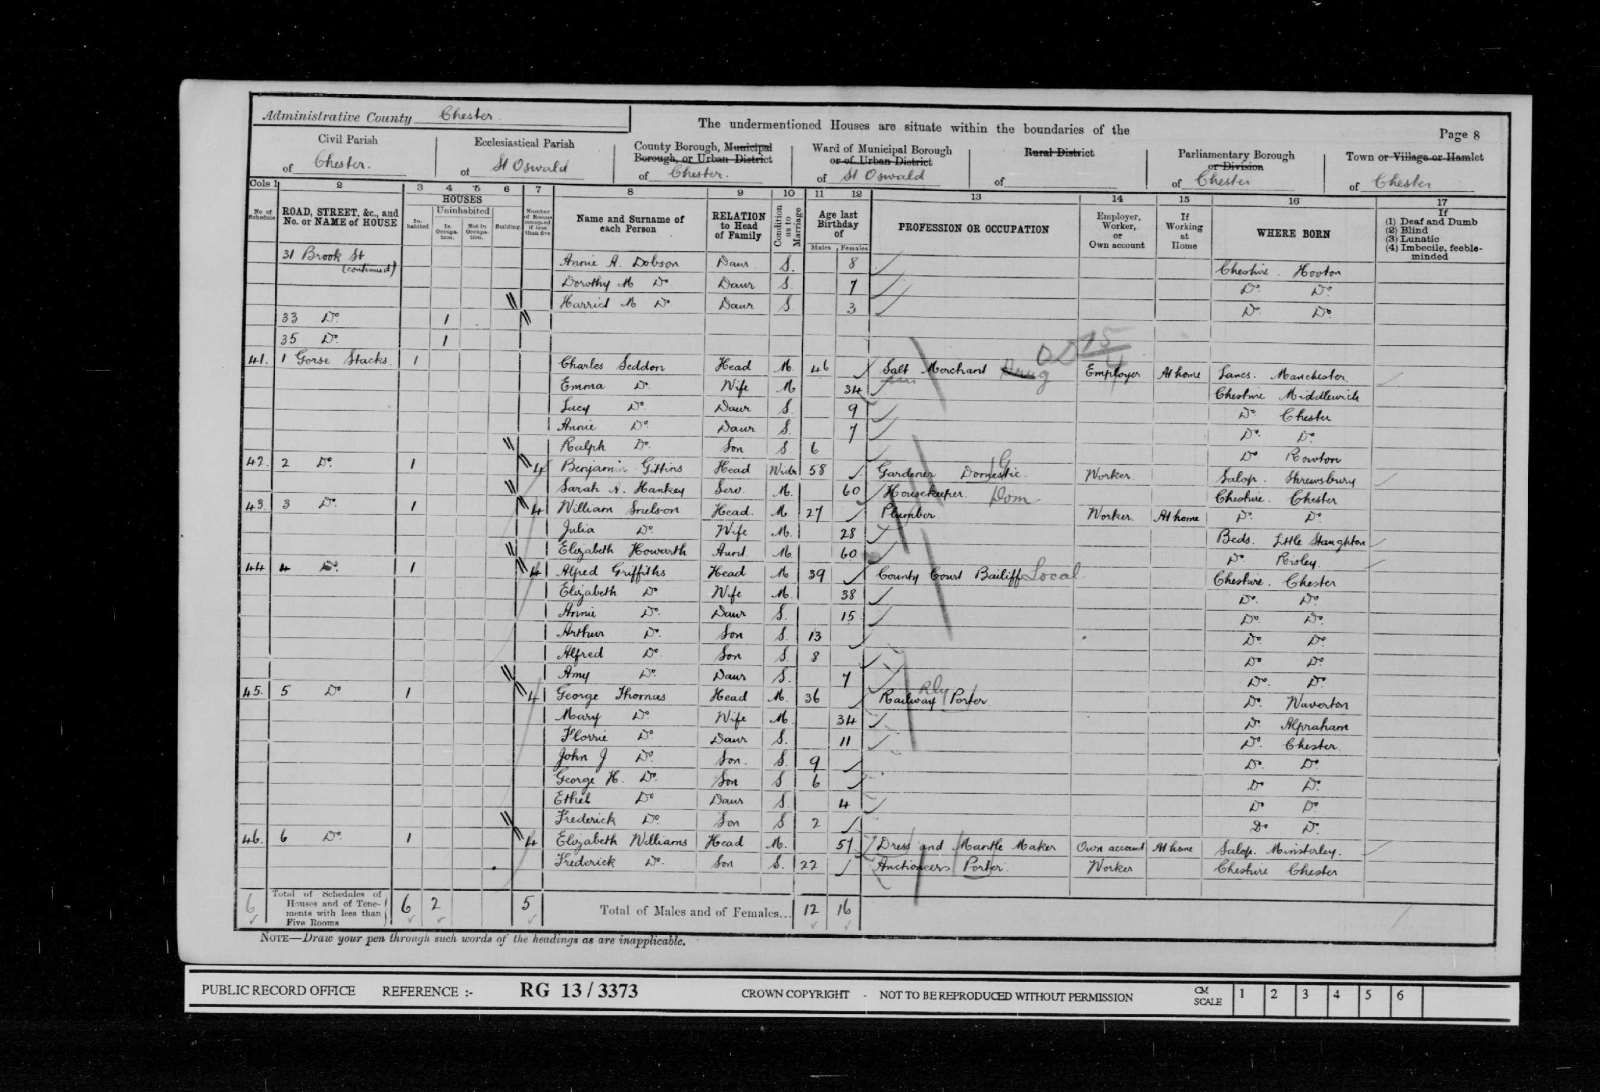 Administrative County Chester.
The undermentioned Houses are situate within the boundaries of the
Page 8
Civil Parish of Chester.
Ecclesiastical Parish of St Oswald
County Borough, Municipal Borough, or Urban District of Chester.
Ward of Municipal Borough or of Urban District of St Oswald
Rural District of
Parliamentary Borough or Division of Chester
Town or Village or Hamlet of Chester
Cols 1 2 3 4 5 6 7 8 9 10 11 12 13 14 15 16 17
No. of Schedule
ROAD, STREET, &c., and No. or NAME of HOUSE
HOUSES
Inhabited
Uninhabited
In Occupation.
Not in Occupation.
Building
Number of Rooms occupied if less than five
Name and Surname of each Person
RELATION to Head of Family
Condition as to Marriage
Age last Birthday of
Males Females
PROFESSION OR OCCUPATION
Employer, Worker, or Own account
If Working at Home
WHERE BORN
If (1) Deaf and Dumb (2) Blind (3) Lunatic (4) Imbecile, feeble-minded
31 Brook St (continued) Annie A. Dobson Daur S. 8 Cheshire. Hooton
Dorothy M Do Daur S 7 Do. Do.
Harriet M Do Daur S 3 Do Do.
33 Do. 1
35 Do. 1
41. 1 Gorse Stacks 1 Charles Seddon Head M. 46 Salt Merchant Employer At home Lancs. Manchester
Emma Do. Wife M 34 Cheshire Middlewich
Lucy Do. Daur S. 9 Do Chester
Annie Do. Daur S. 7 Do. Do.
Ralph Do. Son S 6 Do Rowton
42. 2 Do. 1 4 Benjamin Gittins Head Widr 58 Gardener Domestic Worker Salop. Shrewsbury
Sarah A. Hankey Serv. M. 60 Housekeeper. Dom Cheshire. Chester
43. 3 Do. 1 4 William Snelson Head. M 27 Plumber Worker At home Do. Do.
Julia Do. Wife M. 28 Beds. Little Staughton
Elizabeth Howarth Aunt M 60 Do Risley
44 4 Do. 1 4 Alfred Griffiths Head M 39 County Court Bailiff Local Cheshire. Chester
Elizabeth Do Wife M 38 Do. Do.
Annie Do. Daur S. 15 Do Do.
Arthur Do. Son S. 13 Do Do.
Alfred Do. Son S. 8 Do Do.
Amy Do. Daur S. 7 Do. Do.
45. 5 Do 1 4 George Thomas Head M. 36 Railway Porter Rly Do. Waverton
Mary Do Wife M 34 Do. Alpraham
Florrie Do Daur S. 11 Do. Chester
John J Do. Son. S. 9 Do. Do
George H. Do. Son S 6 Do Do.
Ethel Do Daur S. 4 Do Do
Frederick Do. Son S 2 Do Do.
46. 6 Do. 1 4 Elizabeth Williams Head M. 51 Dress and Mantle Maker Own account At home Salop. Minsterley.
Frederick Do. Son S. 22 Auctioneers Porter. Worker Cheshire Chester
6 Total of Schedules of Houses and of Tenements with less than Five Rooms 6 2 5 Total of Males and of Females... 12 16
NOTE—Draw your pen through such words of the headings as are inapplicable.
PUBLIC RECORD OFFICE REFERENCE :- RG 13 / 3373 CROWN COPYRIGHT - NOT TO BE REPRODUCED WITHOUT PERMISSION CM SCALE 1 2 3 4 5 6